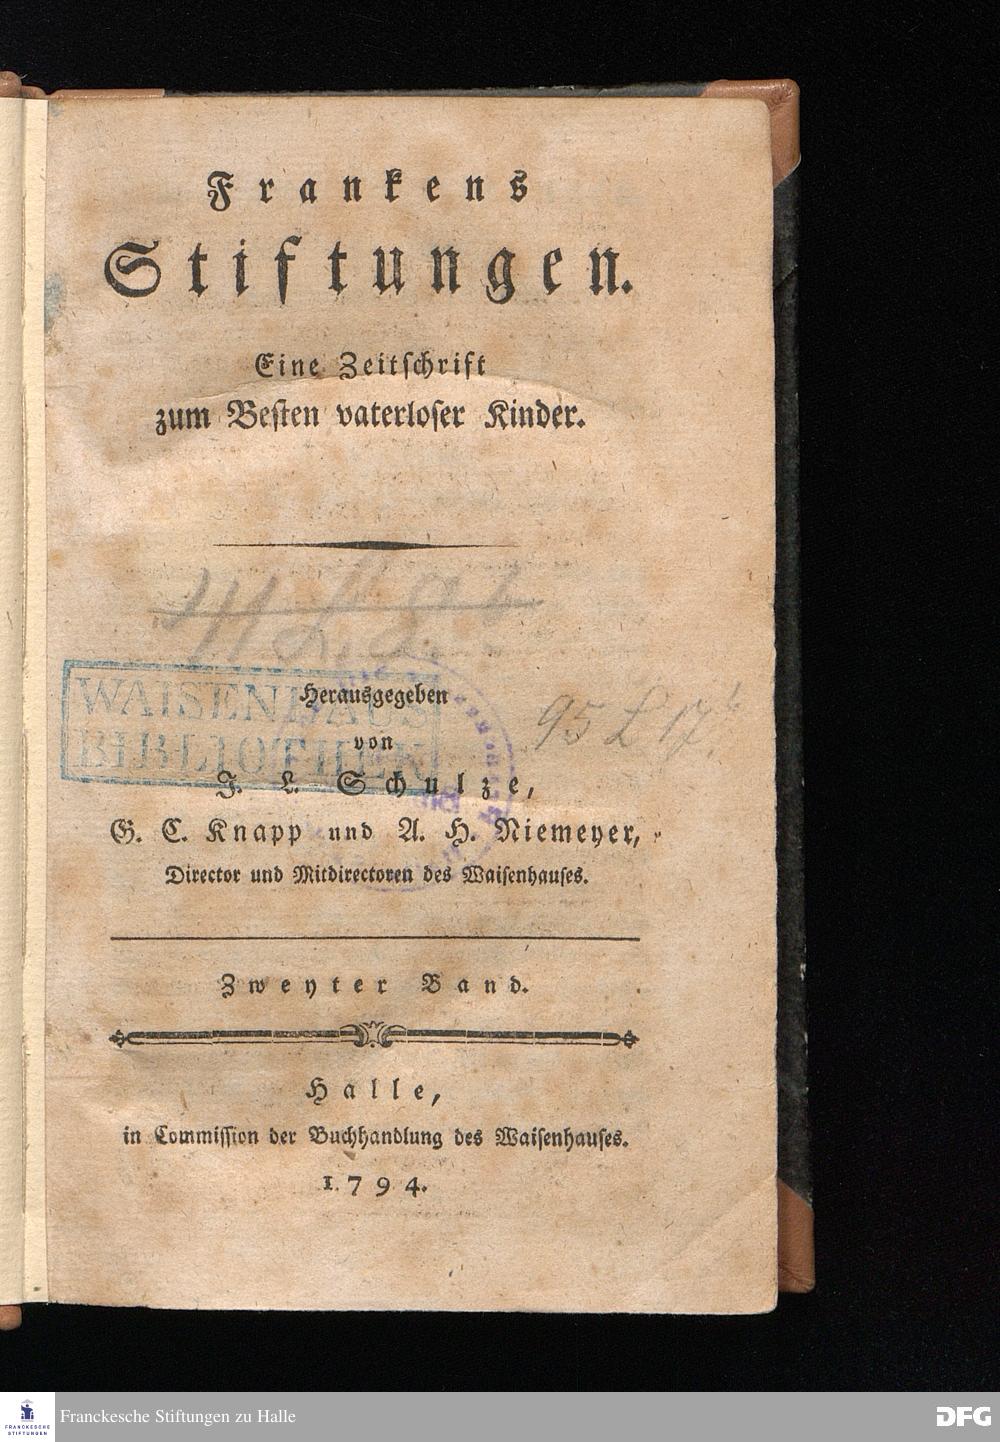 Frankens
Stiftungen.
Eine Zeitſchrift
zum Beſten vaterloſer Kinder.
WAISENHAUS
BIBLIOTHEK
Herausgegeben
von
J. L. Schulze,
G. C. Knapp und A. H. Niemeyer,
Director und Mitdirectoren des Waiſenhauſes.
95 L 17
Zweyter Band.
Halle,
in Commiſſion der Buchhandlung des Waiſenhauſes.
1794.
FRANCKESCHE
STIFTUNGEN
Franckesche Stiftungen zu Halle
DFG